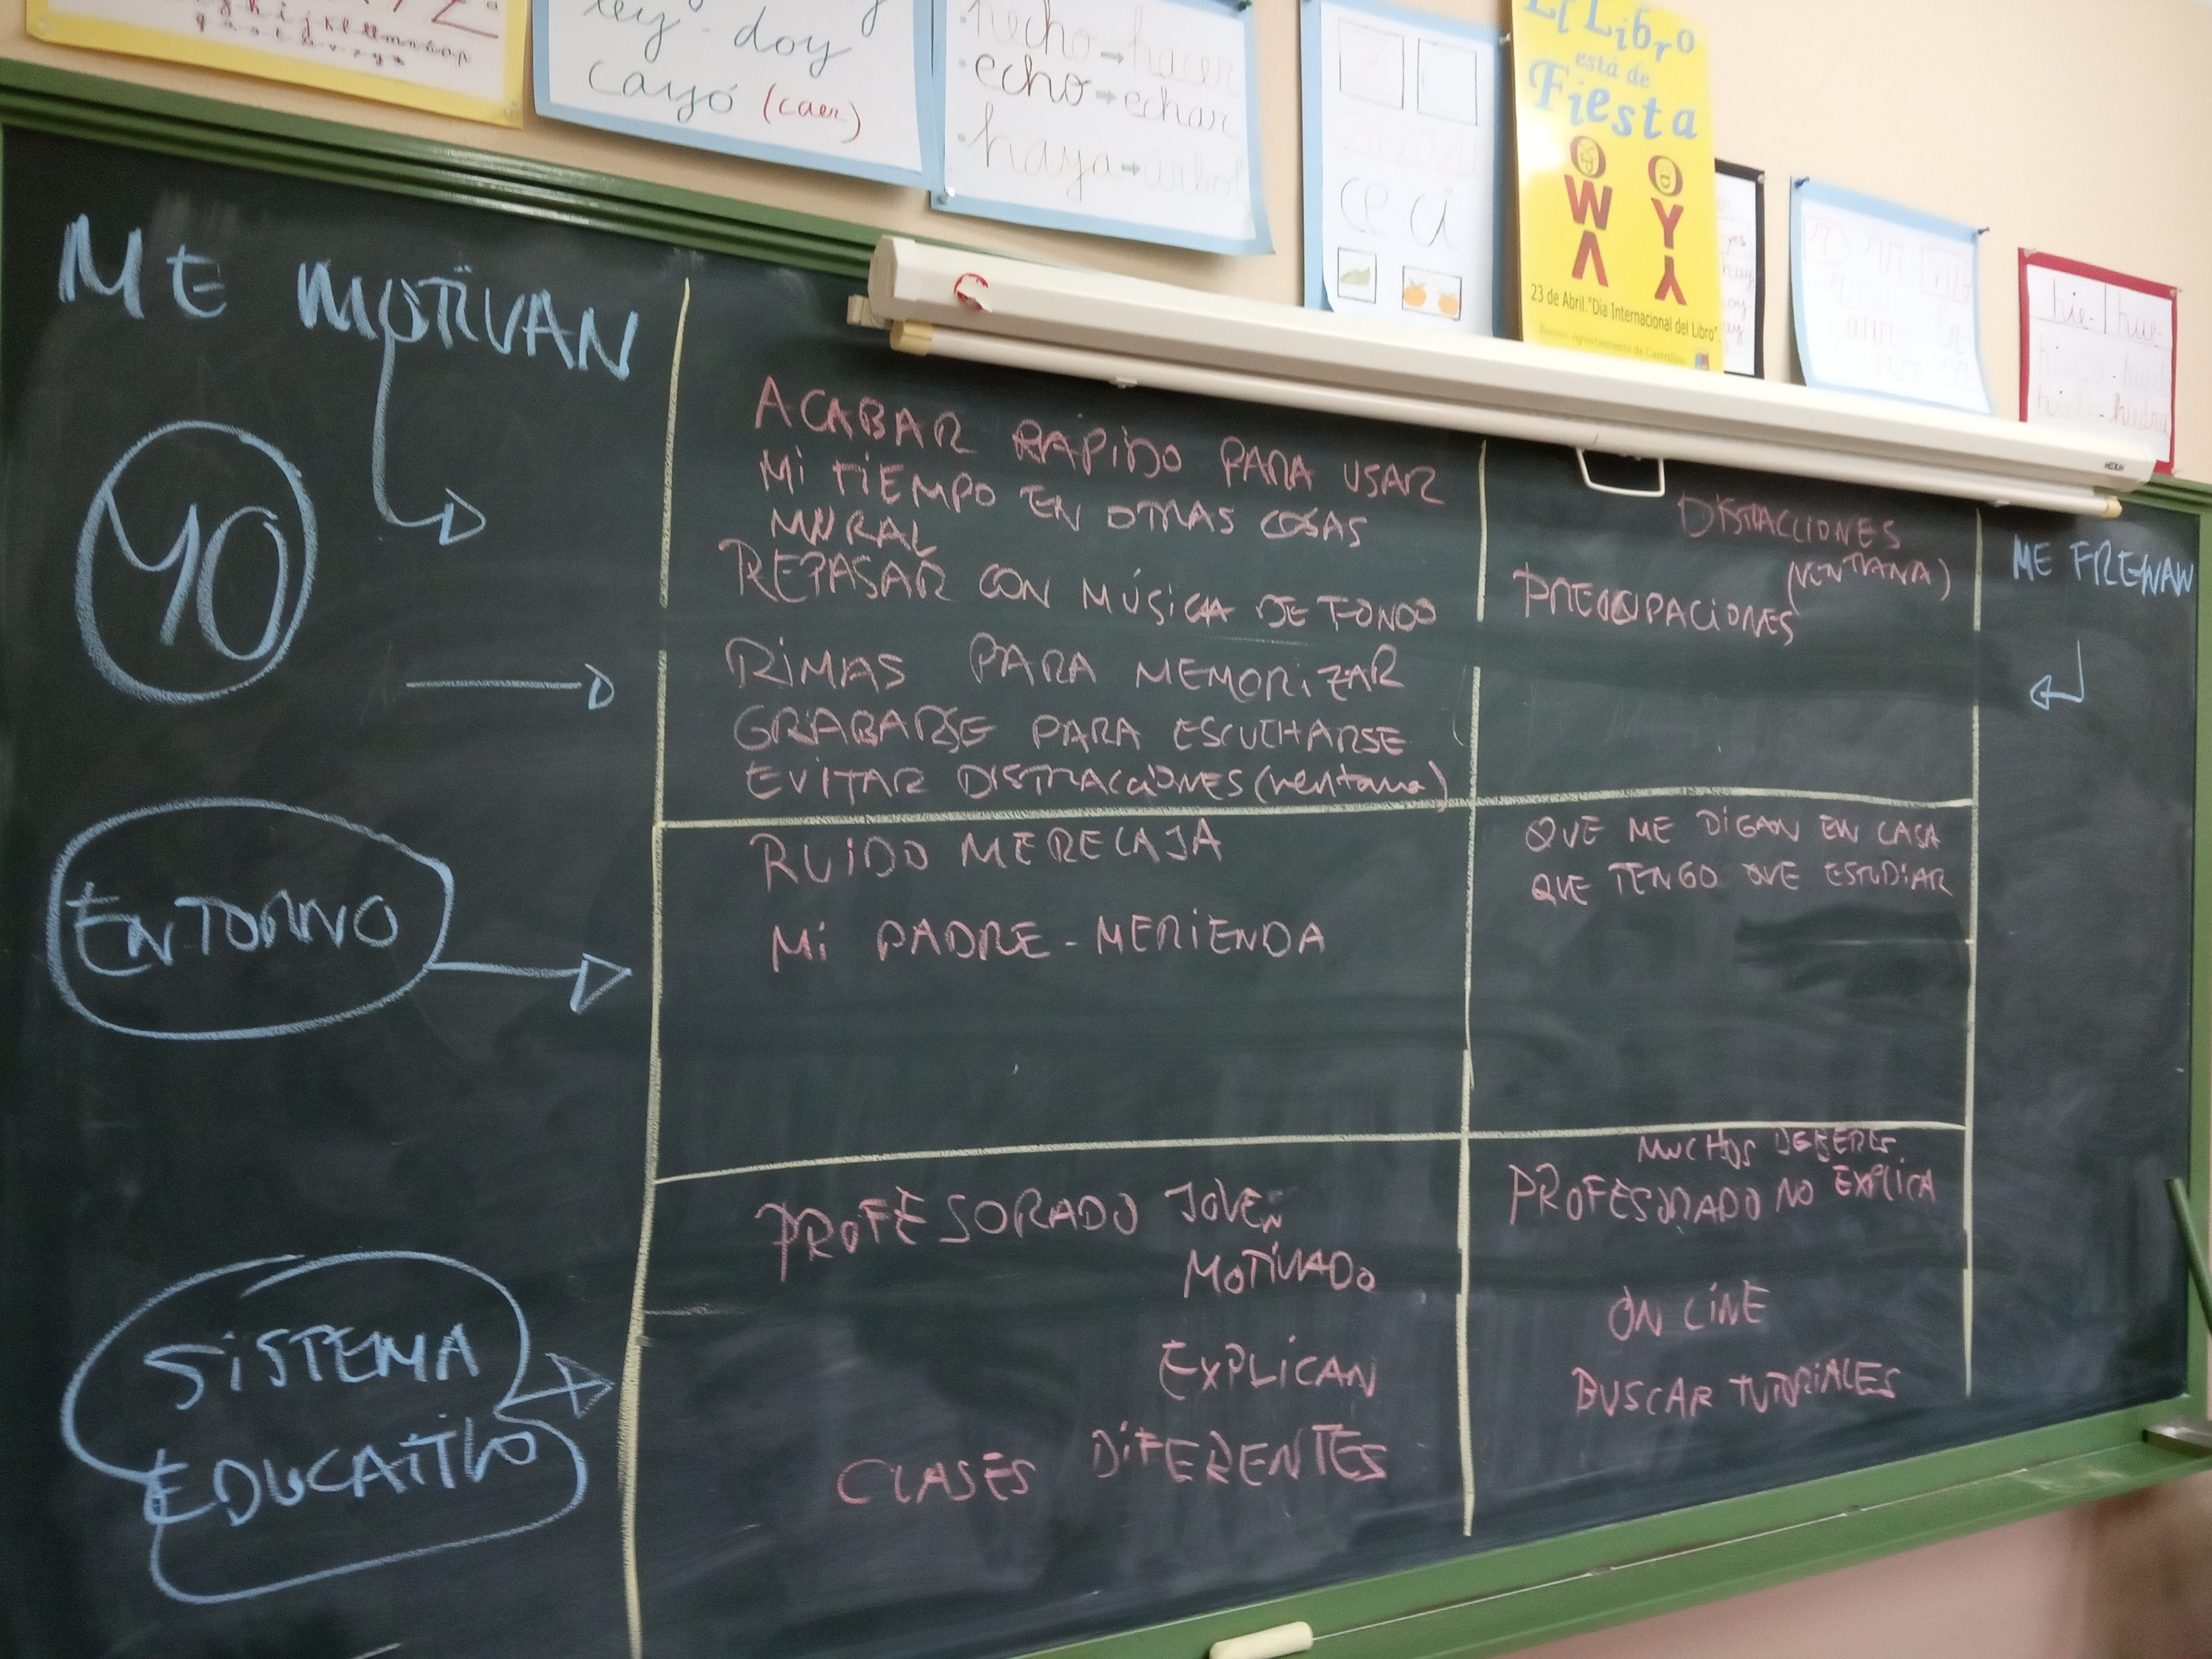 ley - doy
cayó (caer)
hecho → hacer
echo → echar
haya → árbol
Z C
za zo zu
ce ci
El Libro
está de
Fiesta
23 de Abril. "Día Internacional del Libro".
hie- hue-
ME MOTIVAN
YO
ENTORNO
SISTEMA
EDUCATIVO
ACABAR RAPIDO PARA USAR
MI TIEMPO EN OTRAS COSAS
MURAL
REPASAR CON MÚSICA DE FONDO
RIMAS PARA MEMORIZAR
GRABARSE PARA ESCUCHARSE
EVITAR DISTRACCIONES (ventana)
RUIDO ME RELAJA
MI PADRE - MERIENDA
PROFESORADO JOVEN
MOTIVADO
EXPLICAN
CLASES DIFERENTES
DISTRACCIONES
(VENTANA)
PREOCUPACIONES
QUE ME DIGAN EN CASA
QUE TENGO QUE ESTUDIAR
MUCHOS DEBERES
PROFESORADO NO EXPLICA
ON LINE
BUSCAR TUTORIALES
ME FRENAN